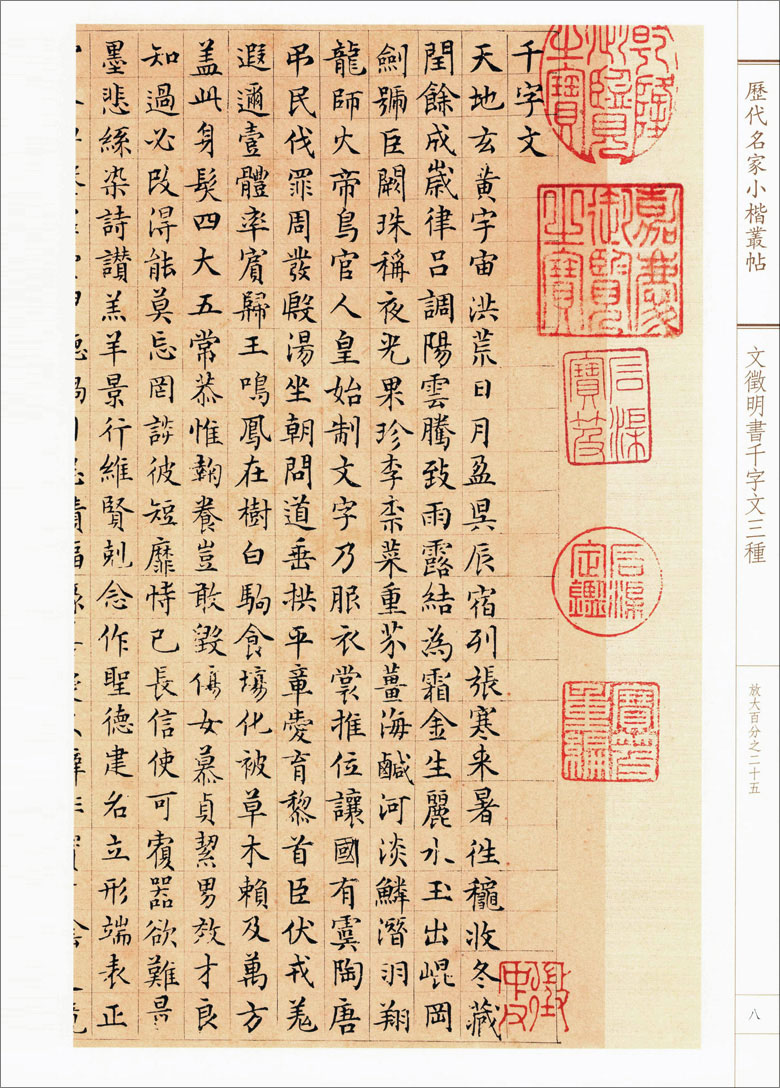 歷代名家小楷叢帖
文徵明書千字文三種
放大百分之二十五
八
乾隆御覽之寶
嘉慶御覽之寶
石渠寶笈
石渠定鑑
寶笈重編
徵仲
千字文
天地玄黃宇宙洪荒日月盈昃辰宿列張寒来暑徃穐收冬藏
閏餘成嵗律吕調陽雲騰致雨露結為霜金生麗水玉出崐岡
劍號巨闕珠稱夜光果珍李柰菜重芥薑海鹹河淡鱗潛羽翔
龍師火帝鳥官人皇始制文字乃服衣裳推位讓國有虞陶唐
弔民伐罪周發殷湯坐朝問道垂拱平章愛育黎首臣伏戎羌
遐邇壹體率賓歸王鳴鳳在樹白駒食場化被草木賴及萬方
盖此身髮四大五常恭惟鞠養豈敢毀傷女慕貞絜男效才良
知過必改得能莫忘罔談彼短靡恃己長信使可覆器欲難量
墨悲絲染詩讃羔羊景行維賢剋念作聖德建名立形端表正